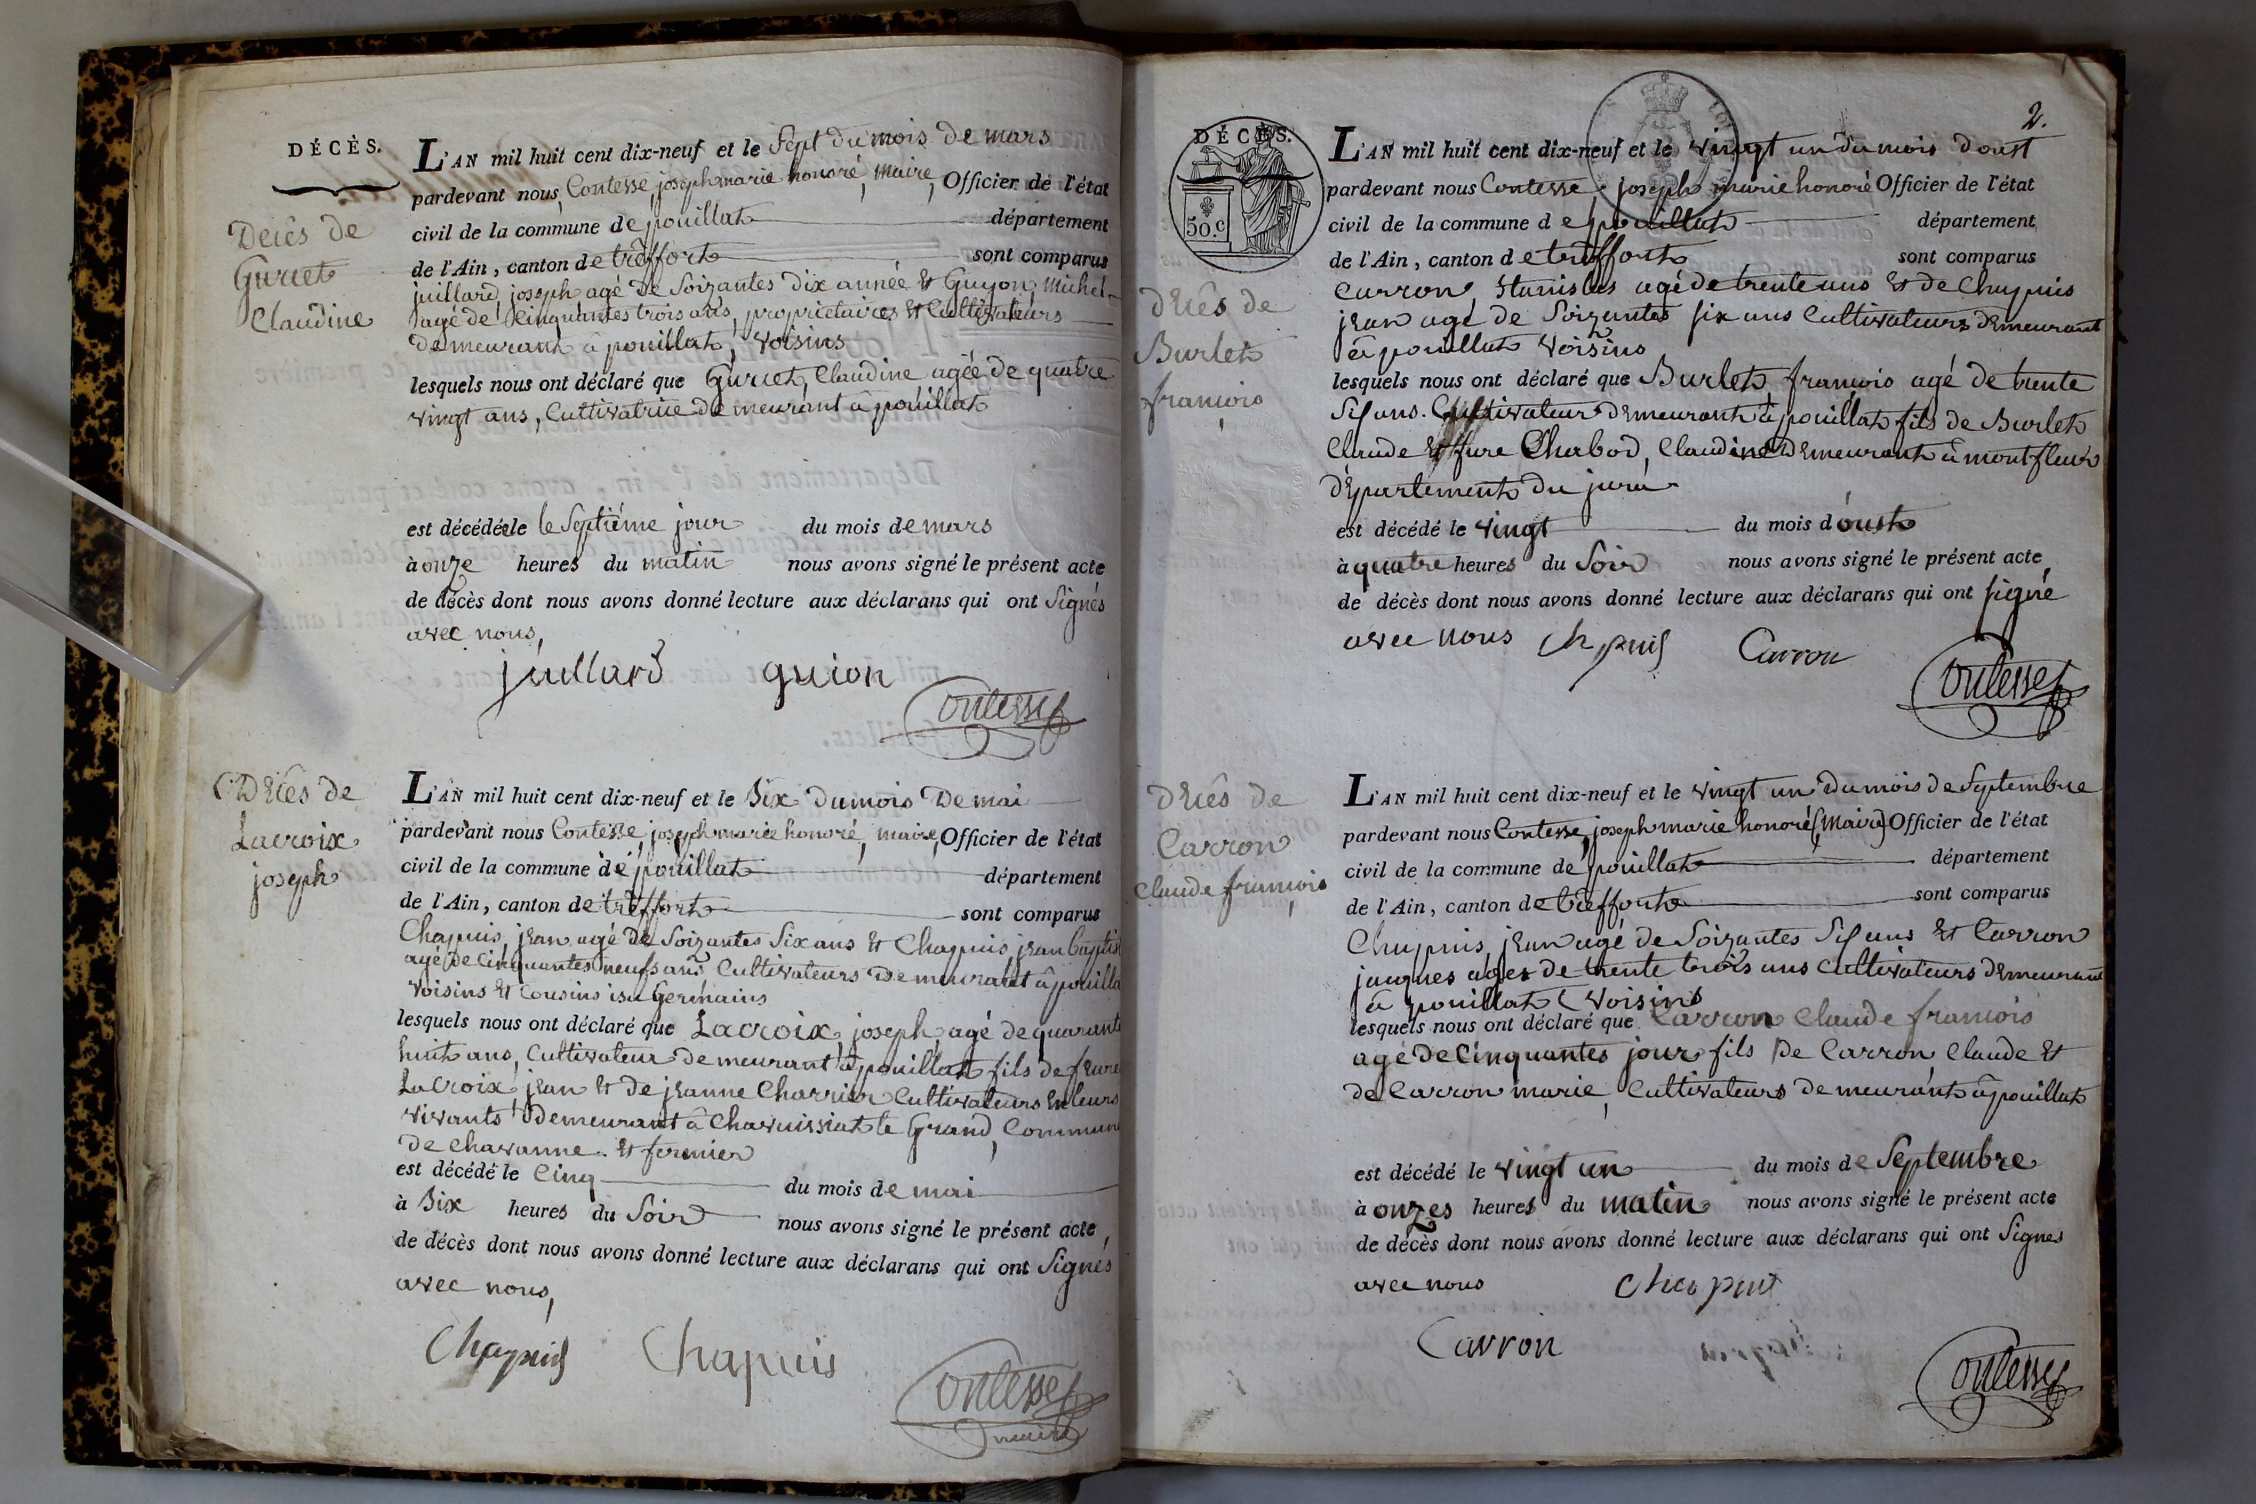 DÉCÈS.
Décès de
Gurcet
Claudine
L'AN mil huit cent dix-neuf et le Sept du mois de mars
pardevant nous, Contesse, joseph marie honoré, Maire, Officier de l'état
civil de la commune de pouillat département
de l'Ain, canton de treffort sont comparus
juillard, joseph agé de Soizantes dix année et Guyon, Michel
agé de cinquantes trois ans, propriétaires et Cultivateurs
demeurant à pouillat, Voisins
lesquels nous ont déclaré que Gurcet, Claudine agée de quatre
vingt ans, Cultivatrice demeurant à pouillat
est décédée le le Septiéme jour du mois de mars
à onze heures du matin nous avons signé le présent acte
de décès dont nous avons donné lecture aux déclarans qui ont Signés
avec nous,
juillard guion
Contesse
Décès de
Lacroix
joseph
L'AN mil huit cent dix-neuf et le Six du mois de mai
pardevant nous Contesse, joseph marie honoré, maire, Officier de l'état
civil de la commune de pouillat département
de l'Ain, canton de treffort sont comparus
Chapuis, jean agé de Soizantes Six ans et Chapuis, jean Baptis
agé de cinquantes neufs ans Cultivateurs demeurant à pouilla
Voisins et Cousins isu Germains
lesquels nous ont déclaré que Lacroix, joseph, agé de quarante
huit ans, Cultivateur demeurant à pouillat fils de feure
Lacroix, jean et de jeanne Charrier Cultivateurs en leurs
vivants demeurant à Chavuissiat le Grand, Commune
de chavanne. et fermier
est décédé le Cinq du mois de mai
à Six heures du Soir nous avons signé le présent acte,
de décès dont nous avons donné lecture aux déclarans qui ont Signés
avec nous,
Chapuis Chapuis
Contesse
maire
2.
DÉCÈS.
50.c
décès de
Burlet
francois
L'AN mil huit cent dix-neuf et le vingt un du mois d'oust
pardevant nous Contesse, joseph marie honoré Officier de l'état
civil de la commune de pouillat département
de l'Ain, canton de treffort sont comparus
Carron, Stanislas agé de trente ans et de Chapuis
jean agé de Soizantes six ans Cultivateurs demeurant
à pouillat Voisins
lesquels nous ont déclaré que Burlet, francois agé de trente
Six ans. Cultivateur demeurant à pouillat fils de Burlet
Claude et fure Chabod, Claudine demeurant à montfleur
département du jura
est décédé le vingt du mois d'oust
à quatre heures du Soir nous avons signé le présent acte,
de décès dont nous avons donné lecture aux déclarans qui ont signé
avec nous Chapuis Carron
Contesse
décès de
Carron
Claude francois
L'AN mil huit cent dix-neuf et le vingt un du mois de Septembre
pardevant nous Contesse, joseph marie honoré (Maire) Officier de l'état
civil de la commune de pouillat département
de l'Ain, canton de treffort sont comparus
Chapuis, jean agé de Soizantes Six ans et Carron
jacques agés de trente trois ans Cultivateurs demeurant
à pouillat Voisins
lesquels nous ont déclaré que Carron Claude francois
agé de Cinquantes jour fils De Carron Claude et
de Carron marie, Cultivateurs demeurants à pouillat
est décédé le vingt un du mois de Septembre
à onzes heures du matin nous avons signé le présent acte
de décès dont nous avons donné lecture aux déclarans qui ont Signes
avec nous Chapuis
Carron
Contesse